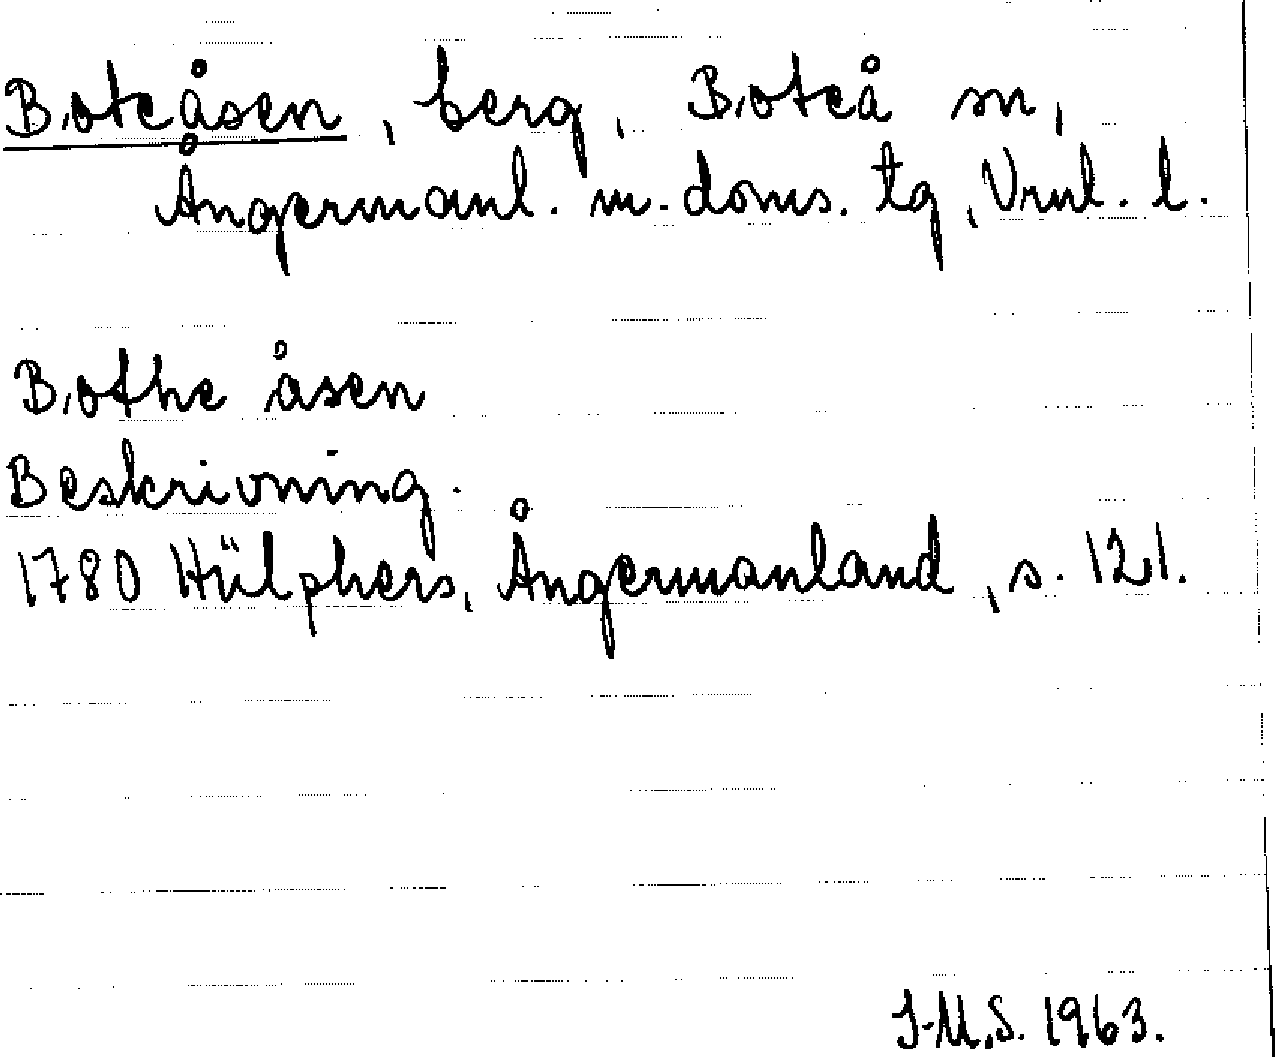 Boteåsen, berg, Boteå sn,
Ångermanl. m. doms. tg, Vrnl. l.
Bothe åsen
Beskrivning.
1780 Hülphers, Ångermanland, s. 121.
I-M.S. 1963.